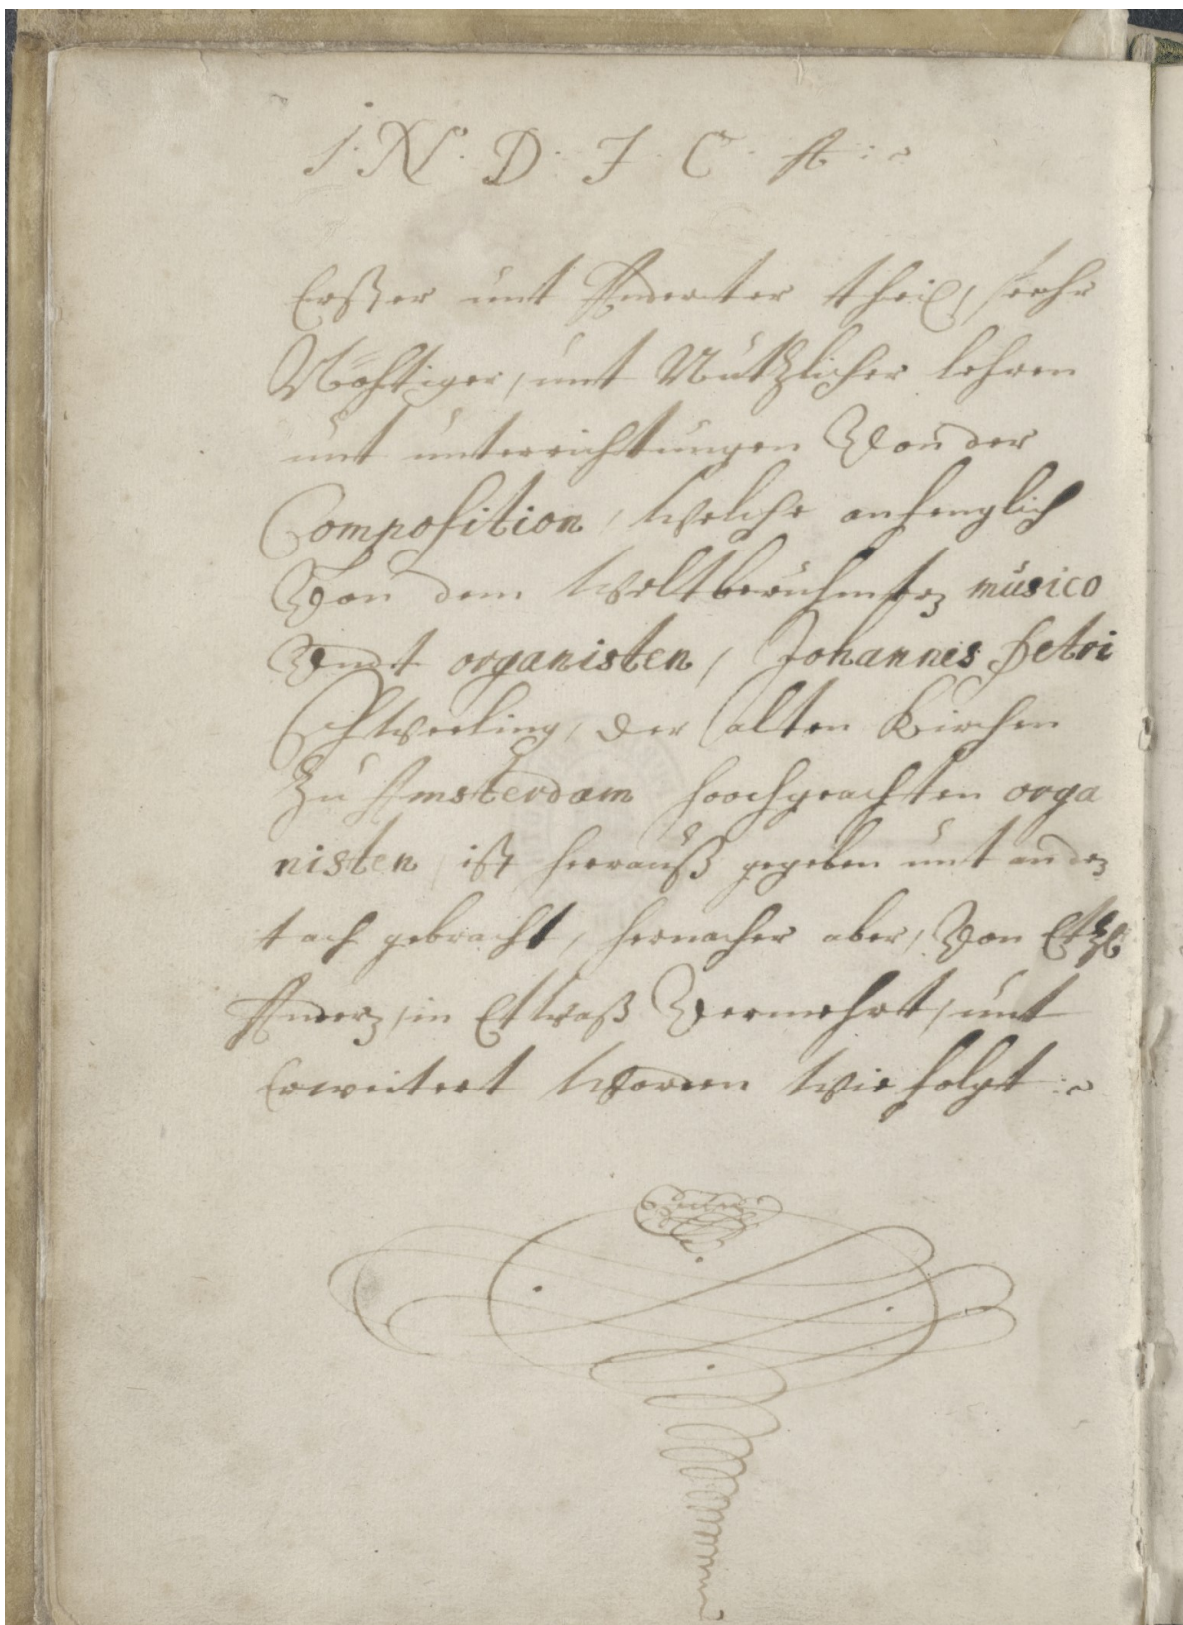 J. N. D. J. C. A :
Erster unt Anderter theil, seehr
Nöhtiger, unt Nützlicher lehren
unt unterrichtungen Von der
Composition, Welche anfenglich
Von dem Weltberühmten musico
Vndt organisten, Johannes Petri
Schweeling, der alten Kirchen
Zu Amsterdam hoochgeachten orga
nisten, ist heerauß gegeben unt an den
tach gebracht, hernacher aber, Von
Andern, in Ettwaß Vermehrt, unt
Erweitert Worden Wie folgt :